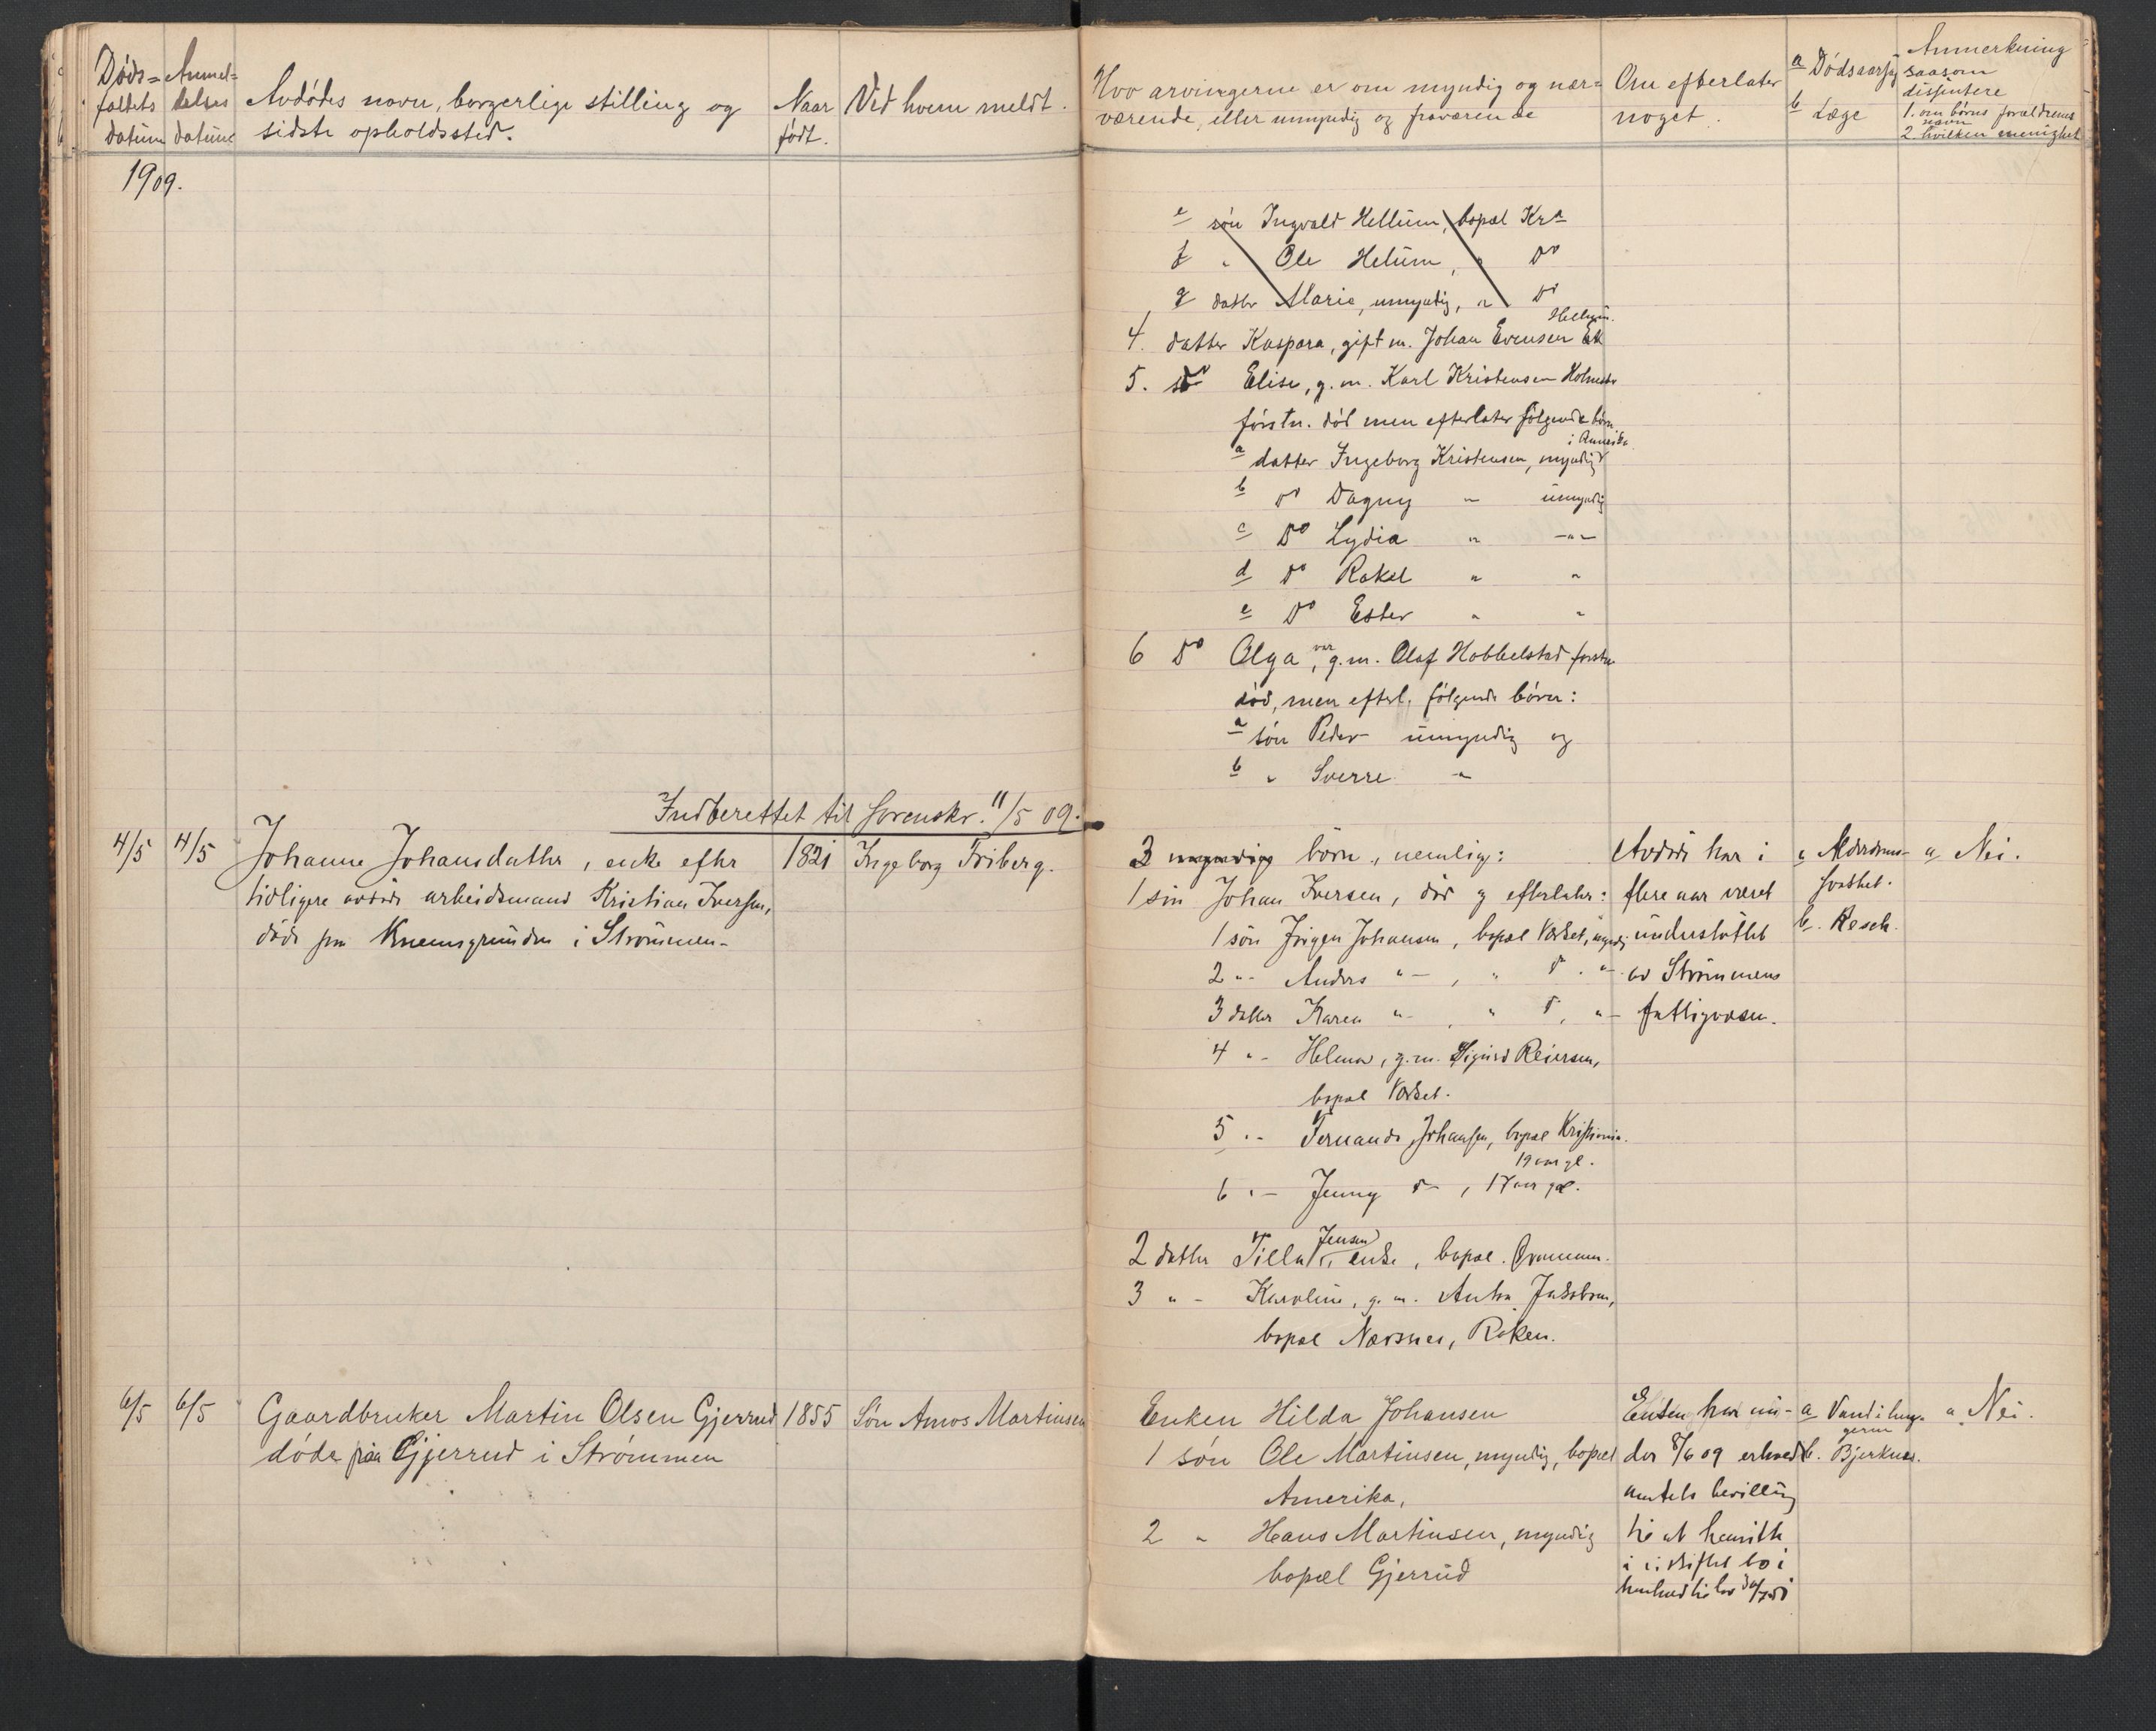 Døds=
faldets
datum
Anmel=
delses
datum
Avdödes navn, borgerlige stilling og
sidste opholdssted.
Naar
födt.
Ved hvem meldt.
Hvo arvingerne er om myndig og nær=
værende, eller umyndig og fraværende
Om efterlater
noget.
a Dödsaarsag
b Læge
Anmerkning
saasom
dissentere
1. om børns forældrenes
navn
2. hvilken menighet
1909.
e søn Ingvald Hellum, bopæl Kra
f " Ole Helum, " Do
g datter Marie, umyndig, " Do
4. datter Kaspara, gift m. Johan Evensen Ek Hellum.
5. do Elise, g. m. Karl Kristensen
förstn. död men efterlater fölgende börn
a datter Ingeborg Kristensen, myndig i Amerika
b do Dagny " umyndig
c Do Lydia " -"-
d Do Rakel " "
e Do Ester " "
6 Do Olga, var g. m. Olaf Hobbelstad forstn
död, men efterl. fölgende börn:
a sön Peder umyndig og
b " Sverre "
Indberettet til Sorenskr. 11/5 09.
4/5 4/5 Johanne Johansdatter, enke efter
tidligere avdöde arbeidsmand Kristian Iversen,
döde paa Knemsgrunden i Strömmen-
1821 Ingeborg Friberg.
3 myndige börn, nemlig:
1 sön Johan Iversen, död og efterlater:
1 sön Jörgen Johansen, bopæl Verket, myndig
2 "- Anders "-, " do. "-
3 datter Karen "-, " do, "-
4 "- Helma, g. m. Sigurd Reiersen,
bopæl Verket.
5 "- Fernanda Johansen, bopæl Kristiania.
19 aar gl.
6 "- Jenny do-, 17 aar gl.
2 datter Tilla Jensen, enke, bopæl. Drammen.
3 "- Karoline, g. m. Anton Jakobsen,
bopæl Nærsnes, Röken.
Avdöde har i
flere aar været
understöttet
av Strömmens
fattigvæsen.
a Alderdoms-
svakhet.
b. Resch.
a Nei.
6/5 6/5 Gaardbruker Martin Olsen Gjerrud
döde paa Gjerrud i Strömmen
1855 Sön Amos Martinsen
Enken Hilda Johansen
1 sön Ole Martinsen, myndig, bopæl
Amerika,
2 " Hans Martinsen, myndig
bopæl Gjerrud
Enken har un-
der 8/6 09 erhvervet
amtets bevilling
til at hensitte
i uskiftet bo i
henhold til lov
a Vand i lun-
gerne
b. Bjerknes.
a. Nei.